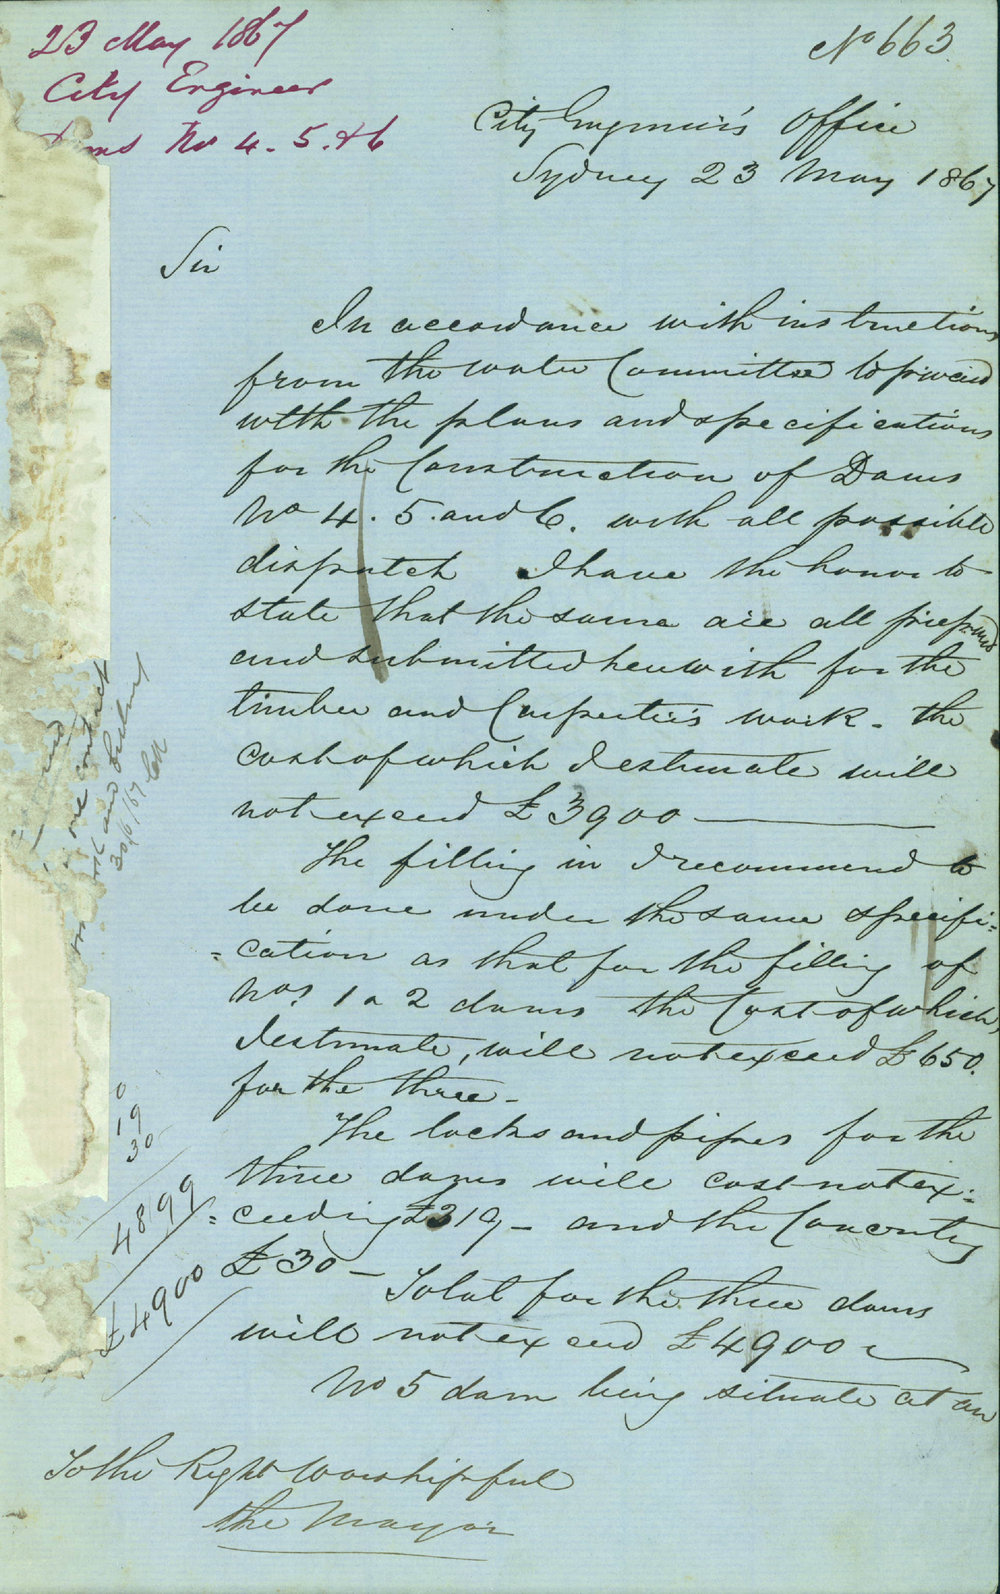 23 May 1867
City Engineer
Dams No 4. 5. & 6
No 663
City Engineer's Office
Sydney 23 May 1867
Sir
In accordance with instructions
from the Water Committee to proceed
with the plans and specifications
for the Construction of Dams
No 4. 5. and 6. with all possible
dispatch I have the honor to
state that the same are all prepared
and submitted herewith for the
timber and Carpenter's work - the
cost of which I estimate will
not exceed £3900
The filling in I recommend to
be done under the same specifi=
=cation as that for the filling of
Nos. 1 & 2 dams the Cost of which
I estimate, will not exceed £650.
for the three -
The locks and pipes for the
three dams will cost not ex=
=ceeding £319 - and the Concreting
£30 - Total for the three dams
will not exceed £4900
No 5 dam being situate at an
To the Right Worshipful
the Mayor
one contract
work and
30/6/67
0
19
30
4899
£4900